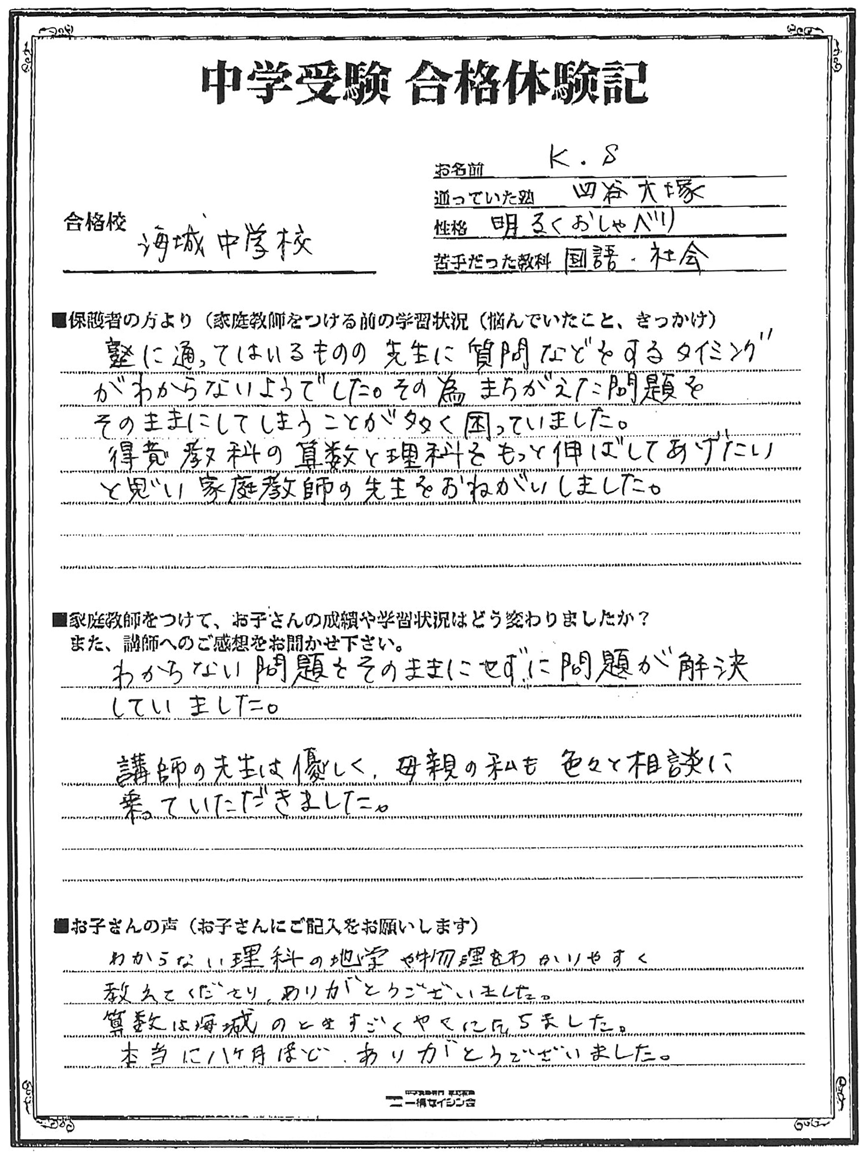 中学受験 合格体験記
お名前 K.S
通っていた塾 四谷大塚
合格校 海城中学校
性格 明るくおしゃべり
苦手だった教科 国語・社会
■保護者の方より（家庭教師をつける前の学習状況（悩んでいたこと、きっかけ）
塾に通ってはいるものの先生に質問などをするタイミング
がわからないようでした。その為まちがえた問題を
そのままにしてしまうことが多く困っていました。
得意教科の算数と理科をもっと伸ばしてあげたい
と思い家庭教師の先生をおねがいしました。
■家庭教師をつけて、お子さんの成績や学習状況はどう変わりましたか？
また、講師へのご感想をお聞かせ下さい。
わからない問題をそのままにせずに問題が解決
していました。
講師の先生は優しく、母親の私も色々と相談に
乗っていただきました。
■お子さんの声（お子さんにご記入をお願いします）
わからない理科の地学や物理をわかりやすく
教えてくださり、ありがとうございました。
算数は海城のときすごくやくに立ちました。
本当に八ヶ月ほど、ありがとうございました。
一橋セイシン会